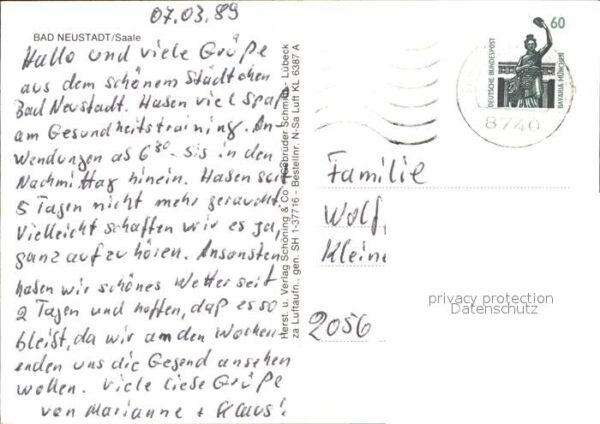 07.03.89
BAD NEUSTADT/Saale
Hallo und viele Grüße
aus dem schönem Städtchen
Bad Neustadt. Haben viel Spaß
am Gesundheitstraining. An-
wendungen ab 6³⁰ bis in den
Nachmittag hinein. Haben seit
5 Tagen nicht mehr geraucht.
Vielleicht schaffen wir es ja,
ganz aufzuhören. Ansonsten
haben wir schönes Wetter seit
2 Tagen und hoffen, daß es so
bleibt, da wir am den Wochen-
enden uns die Gegend ansehen
wollen. Viele liebe Grüße
von Marianne + Klaus!
Herst. u. Verlag Schöning & Co + Gebrüder Schmidt - Lübeck
za Luftaufn., gen. SH 1-37716 - Bestellnr. N-Sa Luft KL 6387 A
60
DEUTSCHE BUNDESPOST
BAVARIA MÜNCHEN
8740
Familie
Wolf
Kleine
2056
privacy protection
Datenschutz